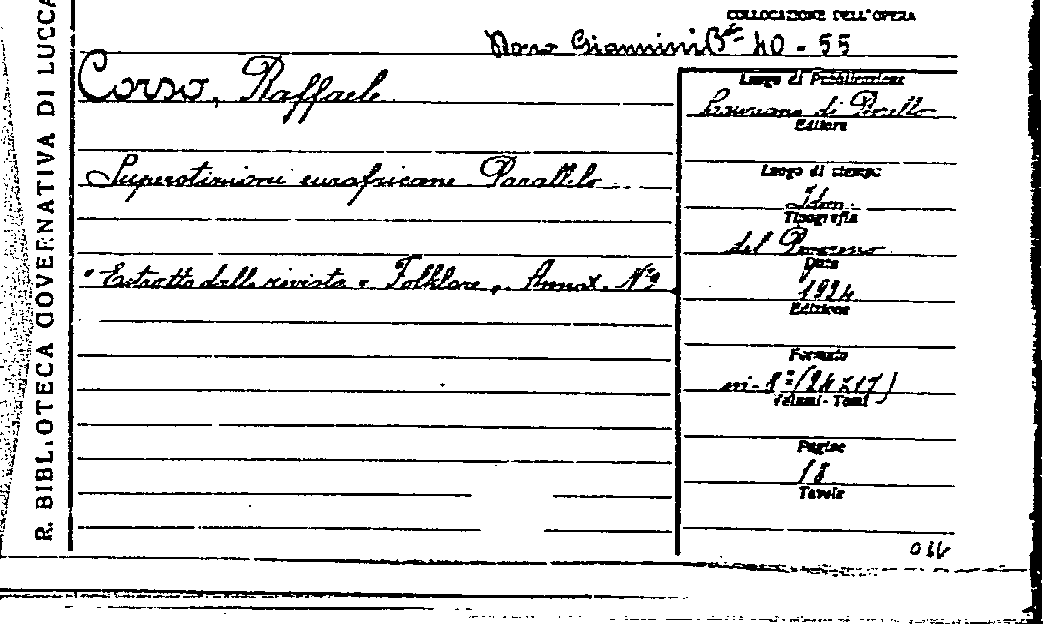 R. BIBLIOTECA GOVERNATIVA DI LUCCA
COLLOCAZIONE DELL'OPERA
Dono Giannini Bta 40 - 55
Corso, Raffaele
Superstizioni eurafricane Parallelo
"Estratto dalla rivista "Folklore", Anno X. N° 2
Luogo di Pubblicazione
Editore
Luogo di stampa
Idem
Tipografia
del
Data
1924
Edizione
Formato
in-8° (24x17)
Volumi - Tomi
Pagine
18
Tavole